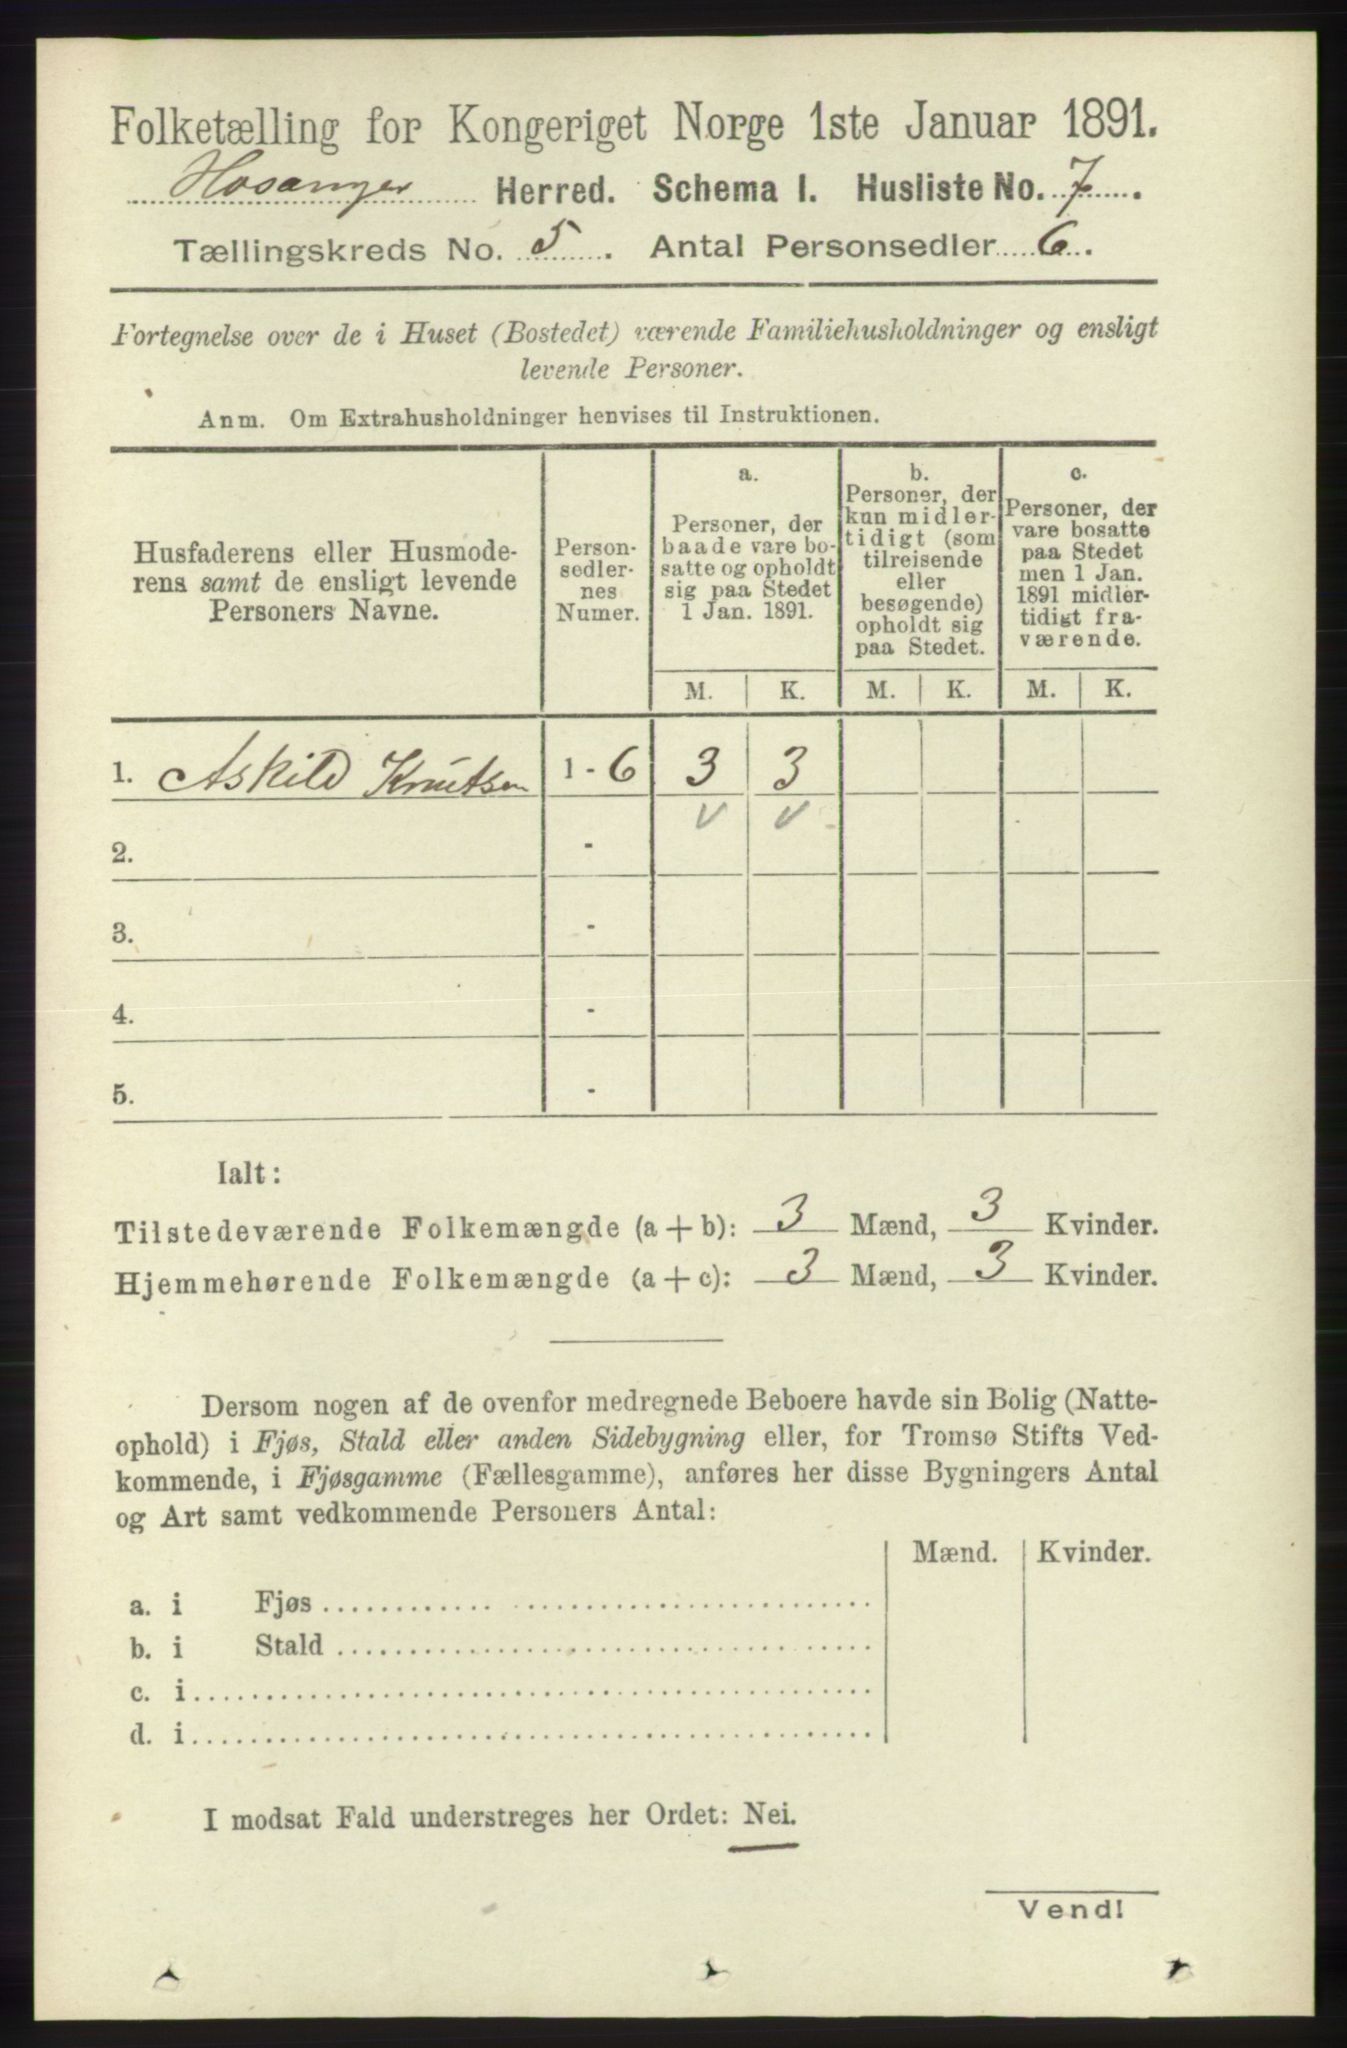 Folketælling for Kongeriget Norge 1ste Januar 1891.
Hosanger Herred. Schema I. Husliste No. 7.
Tællingskreds No. 5. Antal Personsedler 6.
Fortegnelse over de i Huset (Bostedet) værende Familiehusholdninger og ensligt
levende Personer.
Anm. Om Extrahusholdninger henvises til Instruktionen.
Husfaderens eller Husmode-
rens samt de ensligt levende
Personers Navne.
Person-
sedler-
nes
Numer.
a.
Personer, der
baade vare bo-
satte og opholdt
sig paa Stedet
1 Jan. 1891.
b.
Personer, der
kun midler-
tidigt (som
tilreisende
eller
besøgende)
opholdt sig
paa Stedet.
c.
Personer, der
vare bosatte
paa Stedet
men 1 Jan.
1891 midler-
tidigt fra-
værende.
M. K. M. K. M. K.
1. Askild Knutsen 1 - 6 3 3
2. -
3. -
4. -
5. -
Ialt:
Tilstedeværende Folkemængde (a + b): 3 Mænd, 3 Kvinder.
Hjemmehørende Folkemængde (a + c): 3 Mænd, 3 Kvinder.
Dersom nogen af de ovenfor medregnede Beboere havde sin Bolig (Natte-
ophold) i Fjøs, Stald eller anden Sidebygning eller, for Tromsø Stifts Ved-
kommende, i Fjøsgamme (Fællesgamme), anføres her disse Bygningers Antal
og Art samt vedkommende Personers Antal:
Mænd. Kvinder.
a. i Fjøs
b. i Stald
c. i
d. i
I modsat Fald understreges her Ordet: Nei.
Vend!